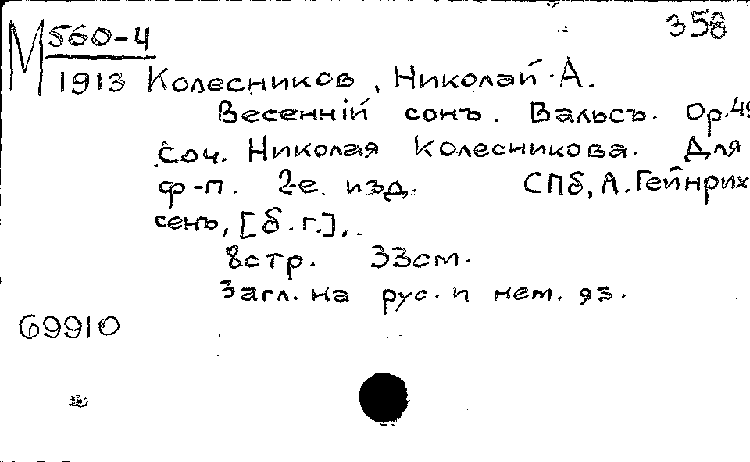 358
М 560-4
1913 Колесников, Николай А.
Весеннiй сонъ. Вальсъ. Ор.49
Соч. Николая Колесникова. Для
ф-п. 2-е изд. СПб, А. Гейнрих
сенъ, [б.г.],.
8стр. 33см.
Загл. на рус. и нем. яз.
69910